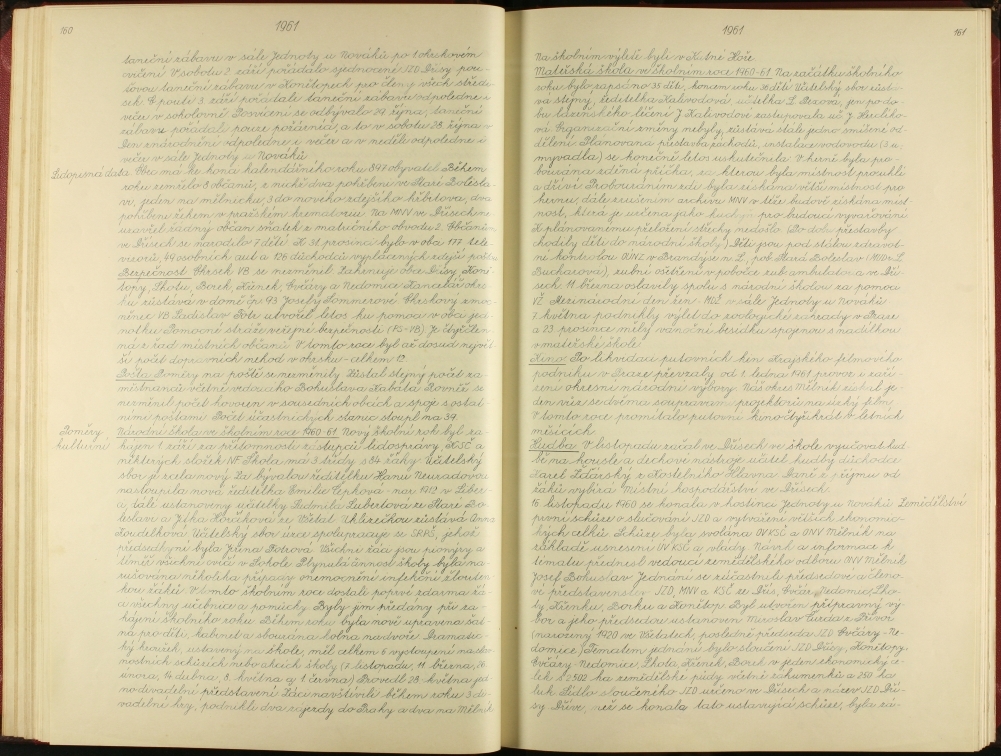 160
1961
taneční zábavu v sále Jednoty u Nováků po 1. okrskovém
cvičení V sobotu 2. září pořádalo sjednocené JZD Dřísy pou-
ťovou taneční zábavu v Konětopech pro členy všech středi-
sek O pouti 3 září pořádali taneční zábavu odpoledne i
večer v sokolovně Posvícení se odbývalo 29. října, taneční
zábavu pořádali pouze požárníci, a to v sobotu 28. října v
Den znárodnění odpoledne i večer a v neděli odpoledne i
večer v sále Jednoty u Nováků
Lidopisná data
Obec má ke konci kalendářního roku 897 obyvatel Během
roku zemřelo 8 občanů, z nichž dva pohřbeni ve Staré Bolesla-
vi, jeden na mělnicku, 3 do nového zdejšího hřbitova, dva
pohřbeni žehem v pražském krematoriu Na MNV ve Dřísech ne-
uzavřel žádný občan sňatek z matričního obvodu 2. Občanům
ve Dřísech se narodilo 7 dětí K 31. prosinci bylo v obci 177 tele-
vizorů, 49 osobních aut a 126 důchodců vyplácených zdejší poštou
Bezpečnost Okrsek VB se nezměnil Zahrnuje obce Dřísy, Koně-
topy, Lhotu, Borek, Křenek, Ovčáry a Nedomice Kancelář okrs-
ku zůstává v domě čp. 93 Josefy Sommerové Okrskový zmoc-
něnec VB Ladislav Fotr utvořil letos ku pomoci v obci jed-
notku Pomocné stráže veřejné bezpečnosti (PS-VB) Je čtyřčlen-
ná z řad místních občanů V tomto roce byl až dosud největ-
ší počet dopravních nehod v okrsku - celkem 12
Pošta Poměry na poště se nezměnily Zůstal stejný počet za-
městnanců včetně vedoucího Bohuslava Kabáta Rovněž se
nezměnil počet hovoren v sousedních obcích a spoje s ostat-
ními poštami Počet účastnických stanic stoupl na 39
Poměry
kulturní
Národní škola ve školním roce 1960-61. Nový školní rok byl za-
hájen 1. září za přítomnosti zástupců lidosprávy, KSČ a
některých složek NF Škola má 3 třídy s 84 žáky Učitelský
sbor je zcela nový Za bývalou ředitelku Hanu Neuradovou
nastoupila nová ředitelka Emilie Čepková - nar 1913 v Liber-
ci, dále ustanoveny učitelky Ludmila Lubertová ze Staré Bo-
leslavi a Jitka Horáčková ze Všetat Uklizečkou zůstává Anna
Koudelková Učitelský sbor úzce spolupracuje se SRPŠ, jehož
předsedkyní byla Jiřina Fotrová Všichni žáci jsou pionýry a
téměř všichni cvičí v Sokole Plynulá činnost školy byla na-
rušována několika případy onemocnění infekční žlouten-
kou žáků V tomto školním roce dostali poprvé zdarma žá-
ci všechny učebnice a pomůcky Byly jim předány při za-
hájení školního roku Během roku byla nově upravena šat-
na pro děti, kabinet a zbourána kolna na dvoře Dramatic-
ký kroužek, ustavený na škole, měl celkem 6 vystoupení na slav-
nostních schůzích nebo akcích školy (7. listopadu, 11. března, 26.
února, 14 dubna, 8. května a 1. června) Provedl 28. května jed-
no divadelní představení Žáci navštívili během roku 3 di-
vadelní hry, podnikli dva zájezdy do Prahy a dva na Mělník
1961
161
Na školním výletě byli v Kutné Hoře
Mateřská škola ve školním roce 1960-61 Na začátku školního
roku bylo zapsáno 35 dětí, koncem roku 36 dětí Učitelský sbor zůstá-
vá stejný, ředitelka Kalivodová, učitelka L. Pacová, jen po do-
bu lázeňského léčení J Kalivodové zastupovala uč. J. Hrochko-
vá Organizační změny nebyly, zůstává stále jedno smíšené od-
dělení Plánovaná přestavba záchodů, instalace vodovodu (s u-
myvadla) se konečně letos uskutečnila V herně byla pro-
bourána zděná příčka, za kterou byla místnost pro uhlí
a dříví Probouráním zdi byla získána větší místnost pro
hernu, dále zrušením archivu MNV v téže budově získána míst-
nost, která je určena jako kuchyň pro budoucí vyvařování
K plánovanému přeložení střechy nedošlo (Po dobu přestavby
chodily děti do národní školy) Děti jsou pod stálou zdravot-
ní kontrolou OÚNZ v Brandýse n. L., pob. Stará Boleslav (MUDr L.
Bucharová), zubní ošetření v pobočce zub. ambulatoria ve Dří-
sech 11. března oslavily spolu s národní školou za pomoci
VŽ Mezinárodní den žen MDŽ v sále Jednoty u Nováků
7. května podnikly výlet do zoologické zahrady v Praze
a 23 prosince měly vánoční besídku spojenou s nadílkou
v mateřské škole
Kino Po likvidaci putovních kin Krajského filmového
podniku v Praze převzaly od 1. ledna 1961 provoz i zaří-
zení okresní národní výbory. Náš okres Mělník získal je-
den vůz se dvěma soupravami projektorů na úzký film
V tomto roce promítalo putovní kino čtyřikrát v letních
měsících
Hudba V listopadu začal ve Dřísech ve škole vyučovat hud-
bě na housle a dechové nástroje učitel hudby důchodce
Karel Žďárský z Kostelního Hlavna Daně z příjmu od
žáků vybírá Místní hospodářství ve Dřísech.
Zemědělství
16. listopadu 1960 se konala v hostinci Jednoty u Nováků
první schůze v slučování JZD a vytváření větších ekonomic-
kých celků Schůze byla svolána OV KSČ a ONV Mělník na
základě usnesení ÚV KSČ a vlády Návrh a informace k
tematu přednesl vedoucí zemědělského odboru ONV Mělník
Josef Bohuslav Jednání se zúčastnili předsedové a členo-
vé představenstev JZD, MNV a KSČ ze Dřís, Ovčár Nedomic, Lho-
ty, Křenku, Borku a Konětop Byl utvořen přípravný vý-
bor a jeho předsedou ustanoven Miroslav Čurda z Přívor
(narozený 1920 ve Všetatech, posledně předseda JZD Ovčáry - Ne-
domice) Tematem jednání bylo sloučení JZD Dřísy, Konětopy,
Ovčáry-Nedomice, Lhota, Křenek, Borek v jeden ekonomický ce-
lek s 2502 ha zemědělské půdy včetně záhumenků a 250 ha
luk Sídlo sloučeného JZD určeno ve Dřísech a název JZD Dří-
sy Dříve, než se konala tato ustavující schůze, byla zá-